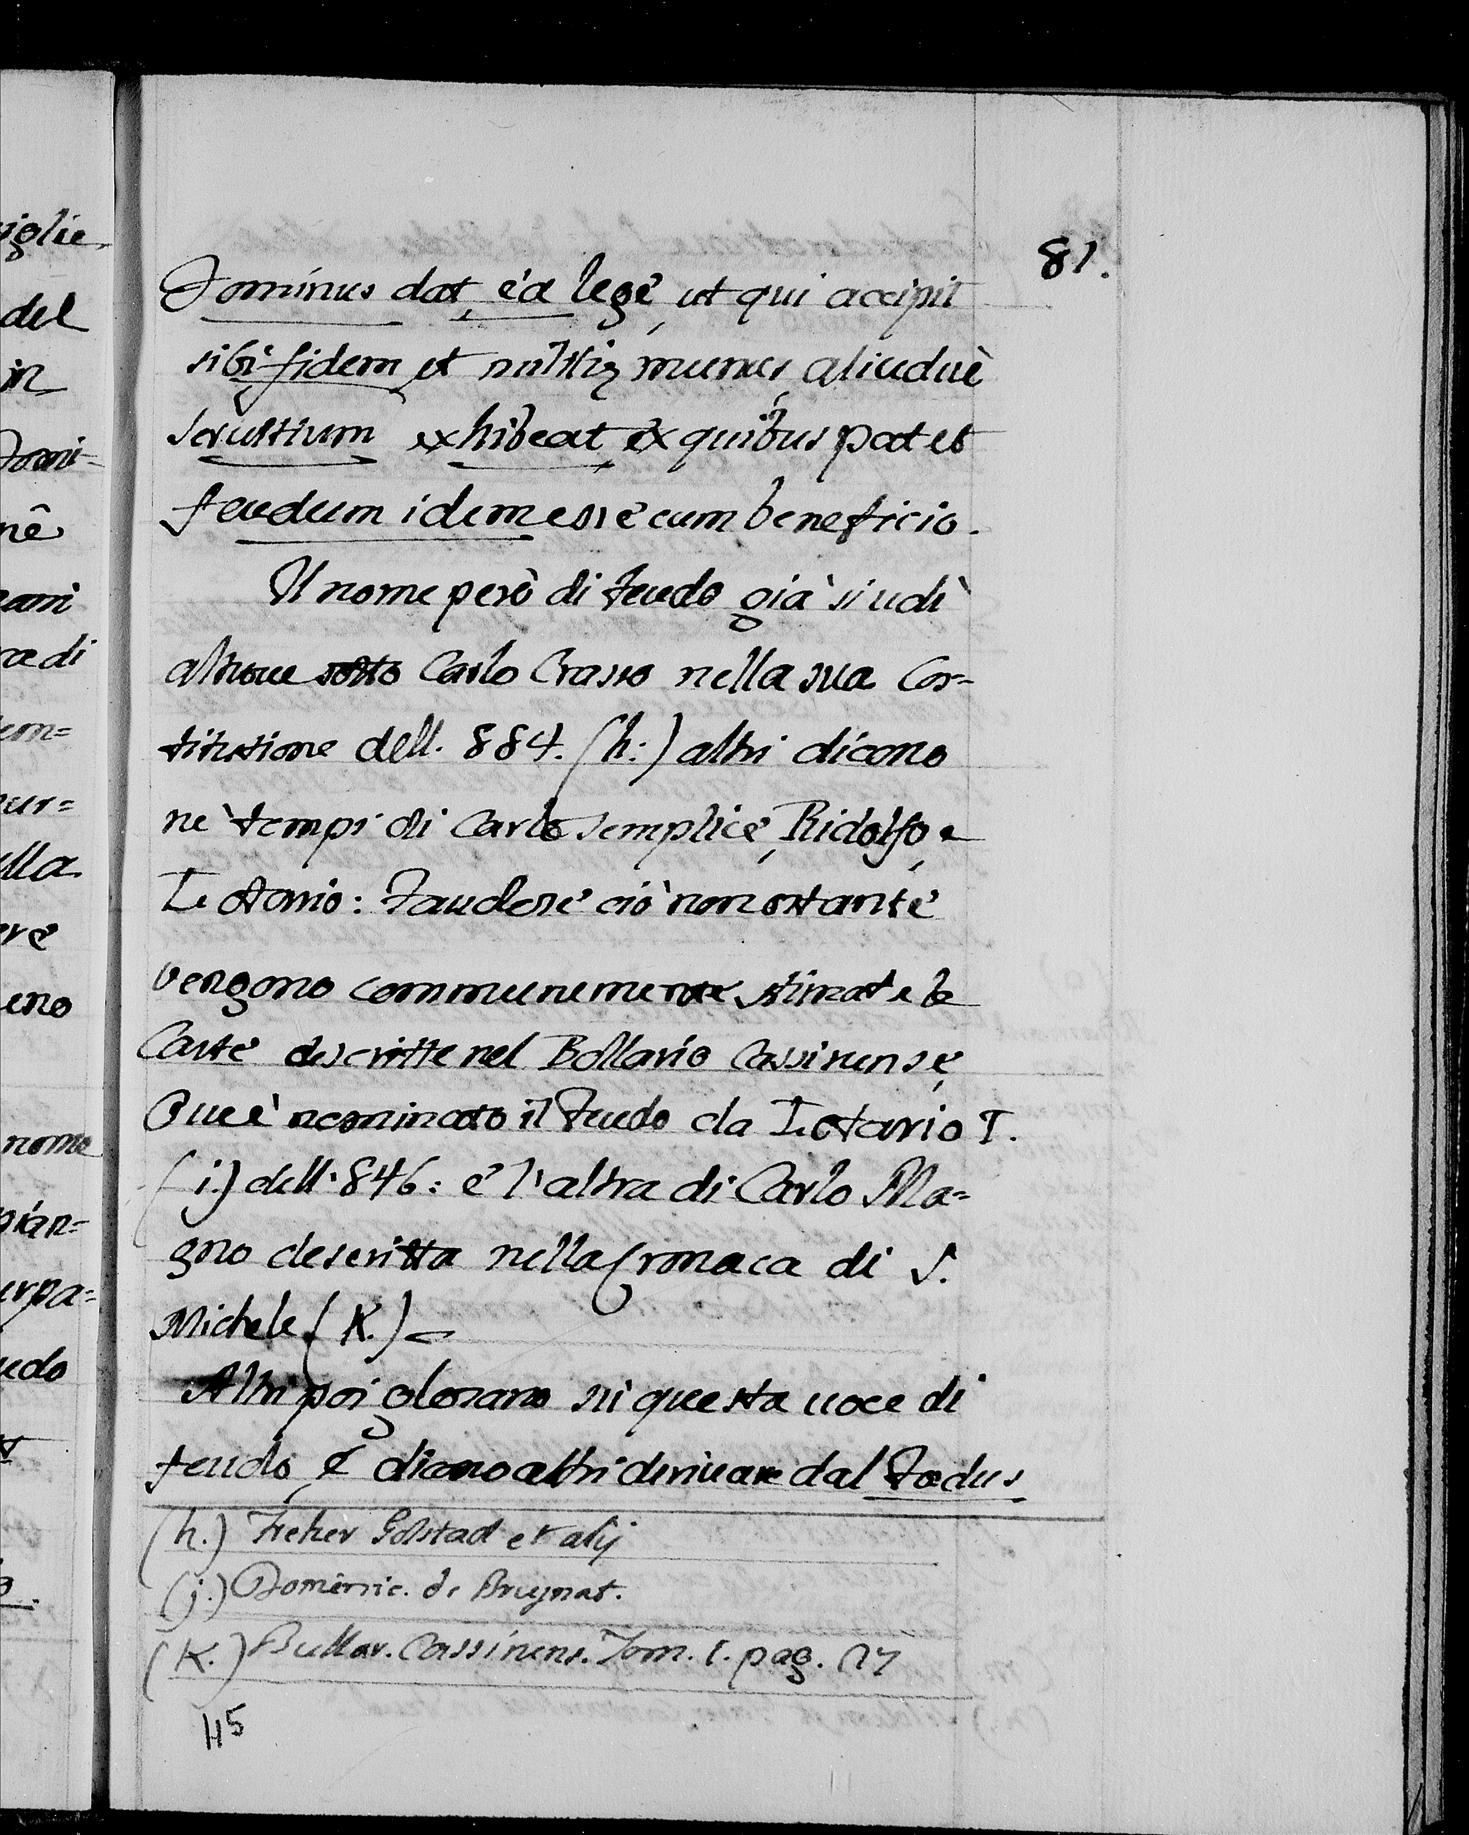 81.
Dominus dat, eà lege, ut qui accipit
sibi fidem et militiæ munus, aliuduè
seruitium exhibeat, ex quibus patet
feudum idem esse cum beneficio.
Il nome però di feudo già si udì
altroue sotto Carlo Crasso nella sua Cos-
titutione dell. 884. (h:) altri dicono
ne' tempi di Carlo semplice, Ridolfo, e
Lotario: ciò nonostante
vengono communemente stimate le
Carte descritte nel Bollario Cassinense,
Oue è nominato il feudo da Lotario I.
(i.) dell. 846: e l'altra di Carlo Ma-
gno descritta nella Cronaca di S.
Michele (K.)
Altri poi glosano sù questa uoce di
feudo, e dicono altri deriuare dal Fædus
(h.) Freher Golstad et alij
(j.) Domênic. de
(K.) Bullar. Cassinens. Tom. I. pag. 27
115
iglie
del
in
Domi-
nê
ani
ra di
em=
ur=
lla
ere
eno
nome
pian=
urpa=
edo